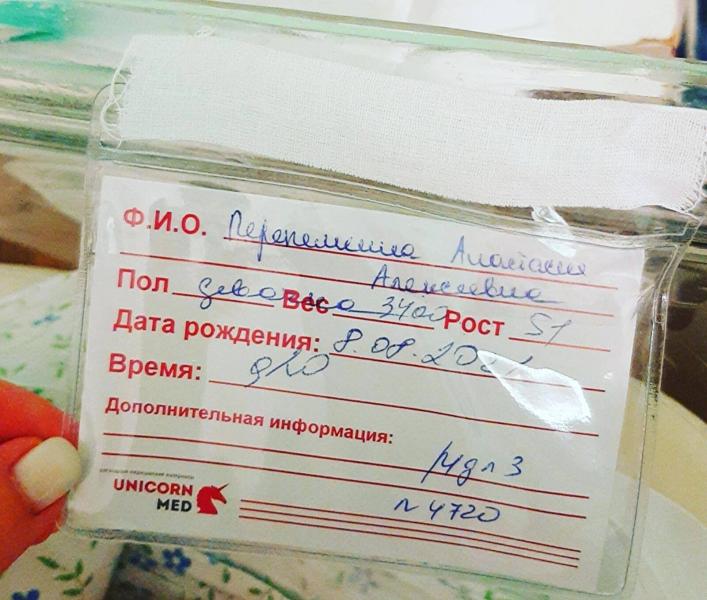 Ф.И.О. Перепелкина Анастасия
Алексеевна
Пол девочка Вес 3400 Рост 51
Дата рождения: 8.08.2021
Время: 920
Дополнительная информация:
№ 4720
UNICORN
MED